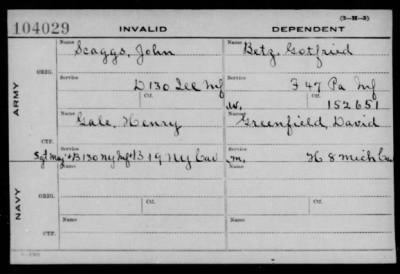 (3-H-3)
104029 INVALID DEPENDENT
Name Scaggs, John Name Betz, Gotfried
ORIG.
Service D 130 Ill Inf Service F 47 Pa Inf
Ctf. W. Ctf. 152651
ARMY
Name Gale, Henry Name Greenfield, David
CTF.
Service Sgt Maj & B 130 Ny Inf & B 19 Ny Cav Service M. H 8 Mich Cav
Name Name
ORIG.
NAVY
Service Ctf. Service Ctf.
Name Name
CTF.
Service Service